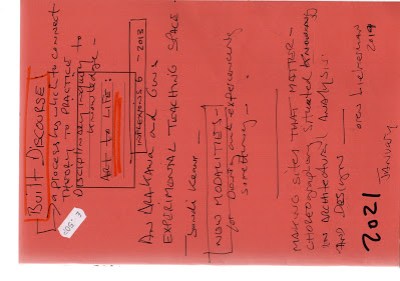 BUILT DISCOURSE
a process by which to connect
THEORY TO PRACTICE
DISCIPLINARY inquiry to
knowledge –
ART TO LIFE:
INFLEXIONS 6 – 2013
AN ARAKAWA and Gins
EXPERIMENTAL TEACHING SPACE –
Jondi Keane –
NEW MODALITIES –
for Desiring and experiencing
something –
MAKING SITES THAT MATTER –
CHOREOGRAPHING Situated Knowing
IN ARCHITECTURAL ANALYSIS
AND DESIGN –
OREN Lieberman
2019
2021
JANUARY